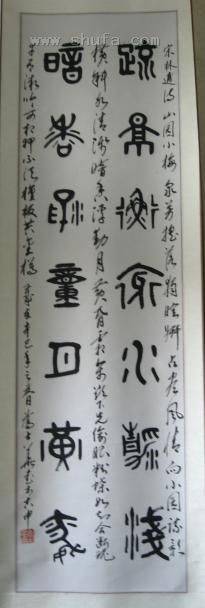 www.shufa.com
宋林逋诗山园小梅众芳摇落独暄妍占尽风情向小园疏影
疏影橫斜水清淺
横斜水清浅暗香浮动月黄昏霜禽欲下先偷眼粉蝶如知合断魂
暗香浮動月黄昏
幸有微吟可相狎不须檀板共金樽 辛巳年之春日